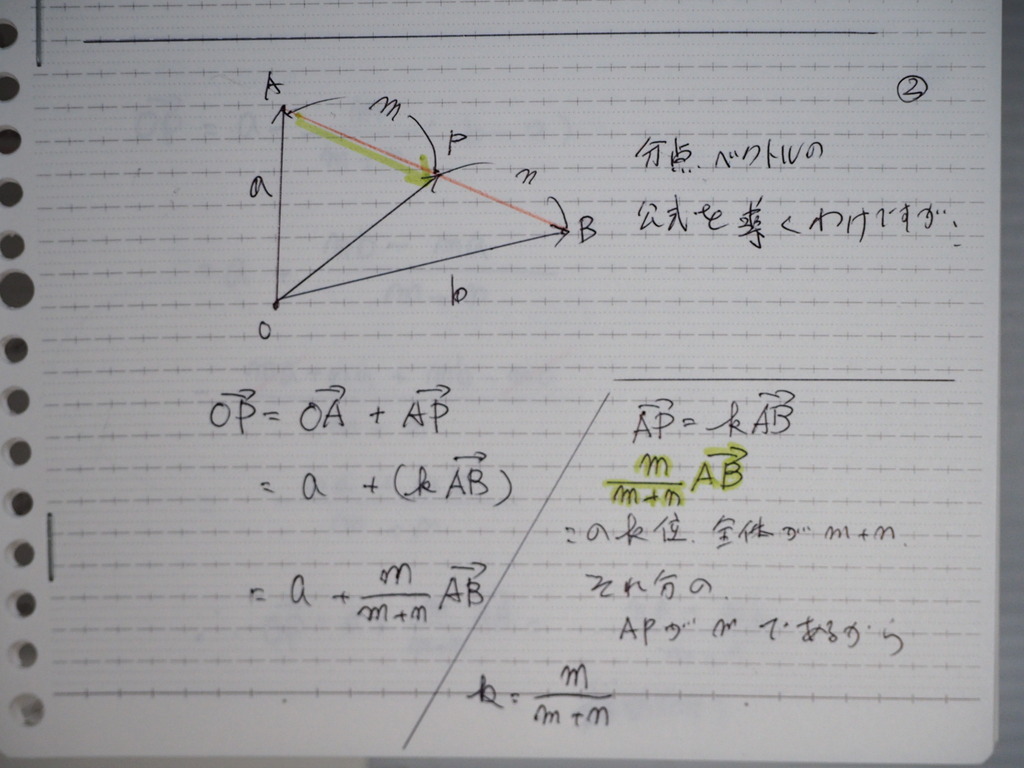 ②
A
m
P
a
n
B
b
O
分点ベクトルの
公式を導くわけですが、
OP→ = OA→ + AP→
= a + (k AB→)
= a + m/(m+n) AB→
AP→ = k AB→
m/(m+n) AB→
このk位. 全体が m+n.
それ分の.
APが m であるから
k = m/(m+n)